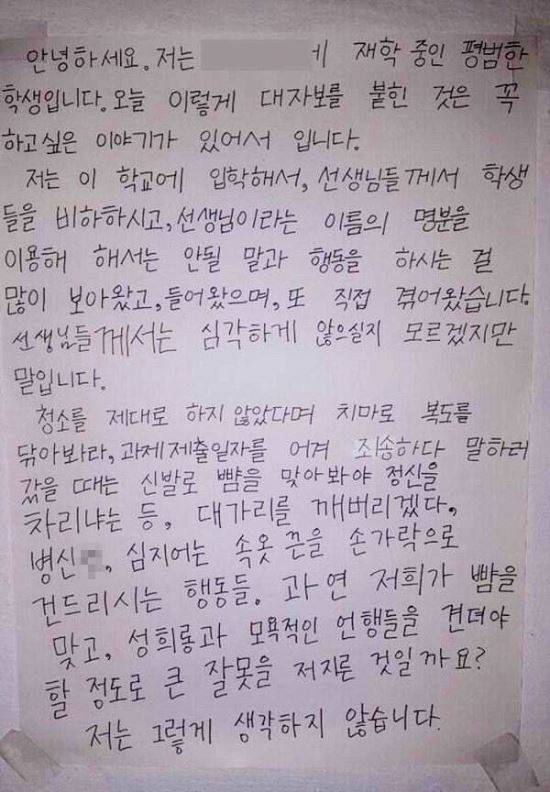 안녕하세요. 저는 에 재학 중인 평범한
학생입니다. 오늘 이렇게 대자보를 붙힌 것은 꼭
하고싶은 이야기가 있어서 입니다.
저는 이 학교에 입학해서, 선생님들께서 학생
들을 비하하시고, 선생님이라는 이름의 명분을
이용해 해서는 안될 말과 행동을 하시는 걸
많이 보아왔고, 들어왔으며, 또 직접 겪어왔습니다.
선생님들께서는 심각하게 않으실지 모르겠지만
말입니다.
청소를 제대로 하지 않았다며 치마로 복도를
닦아봐라, 과제제출일자를 어겨 죄송하다 말하러
갔을 때는 신발로 뺨을 맞아봐야 정신을
차리냐는 등, 대가리를 깨버리겠다,
병신 , 심지어는 속옷 끈을 손가락으로
건드리시는 행동들. 과연 저희가 뺨을
맞고, 성희롱과 모욕적인 언행들을 견뎌야
할 정도로 큰 잘못을 저지른 것일까요?
저는 그렇게 생각하지 않습니다.